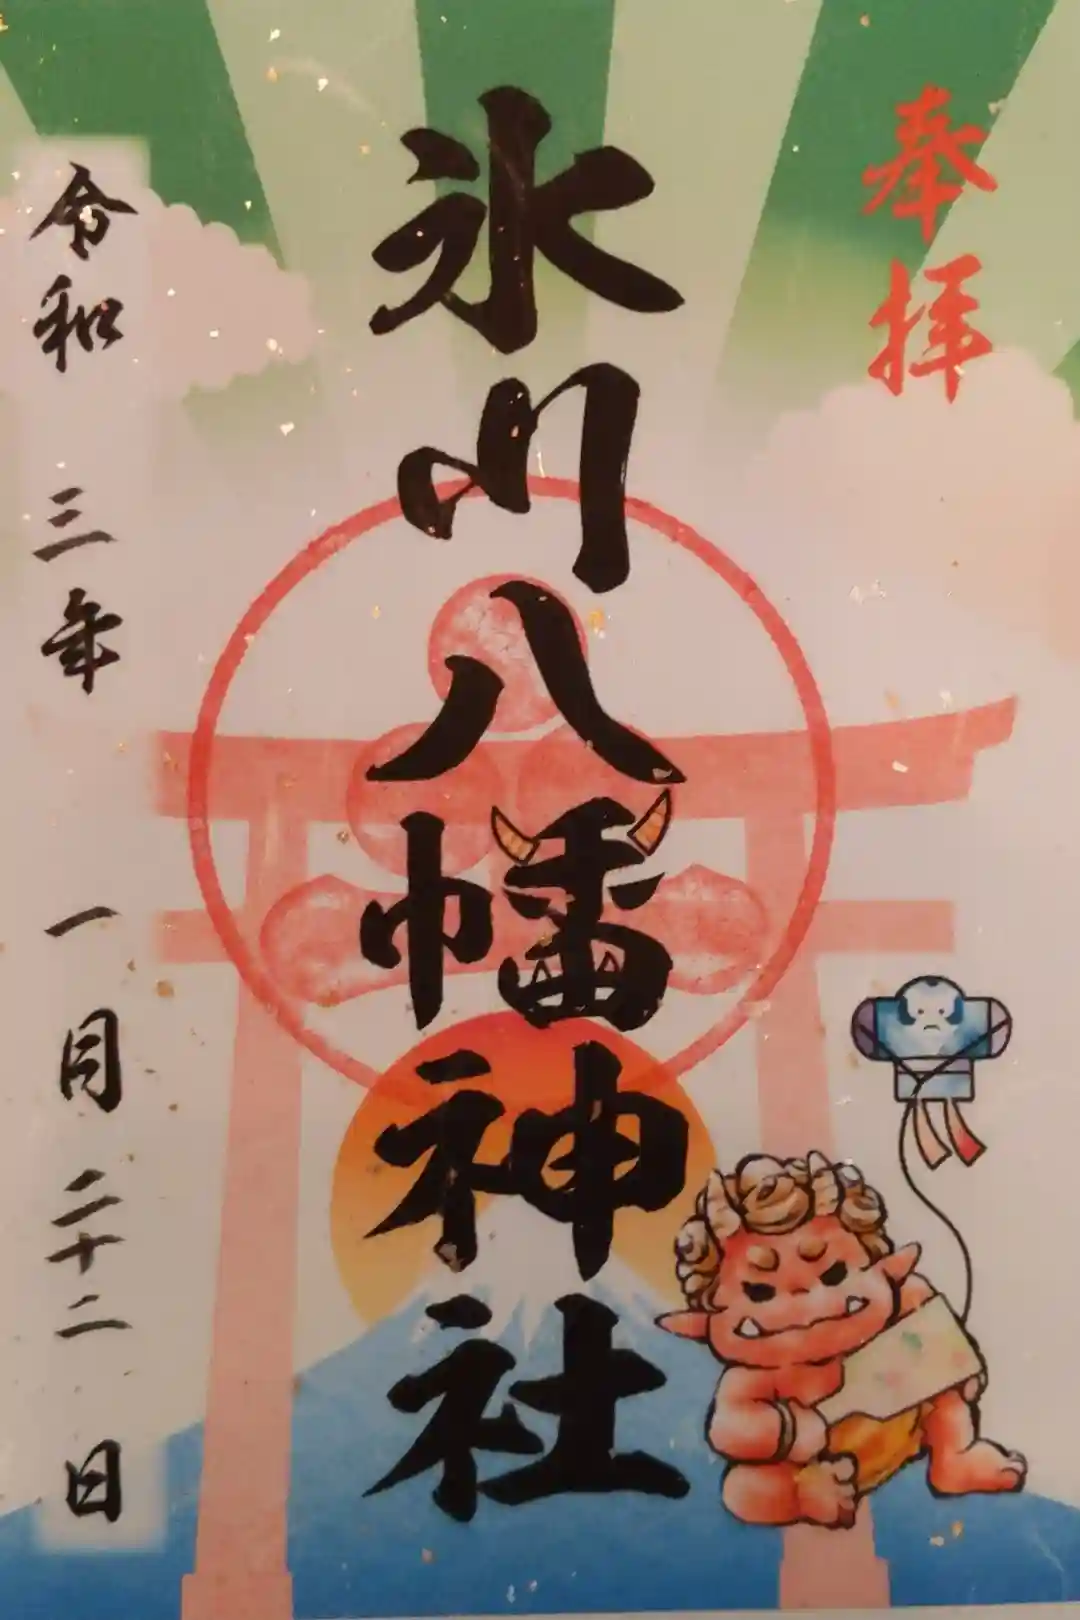 奉拝
氷川八幡神社
令和三年一月二十二日